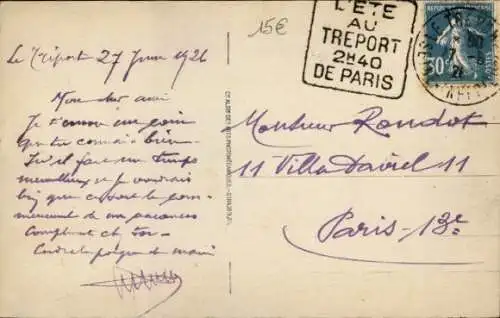 Le Tréport 27 Juin 1926
Mon cher ami
Je t'envoie un coin
que tu connais bien
Ici il fait un temps
merveilleux et je voudrais
bien que ce soit le com-
mencement de mes vacances
Compliments chez toi
Cordiale poignée de main
15€
L'ÉTÉ
AU
TRÉPORT
2H40
DE PARIS
30c
Monsieur Rondot
11 Villa Daviel 11
Paris-13e